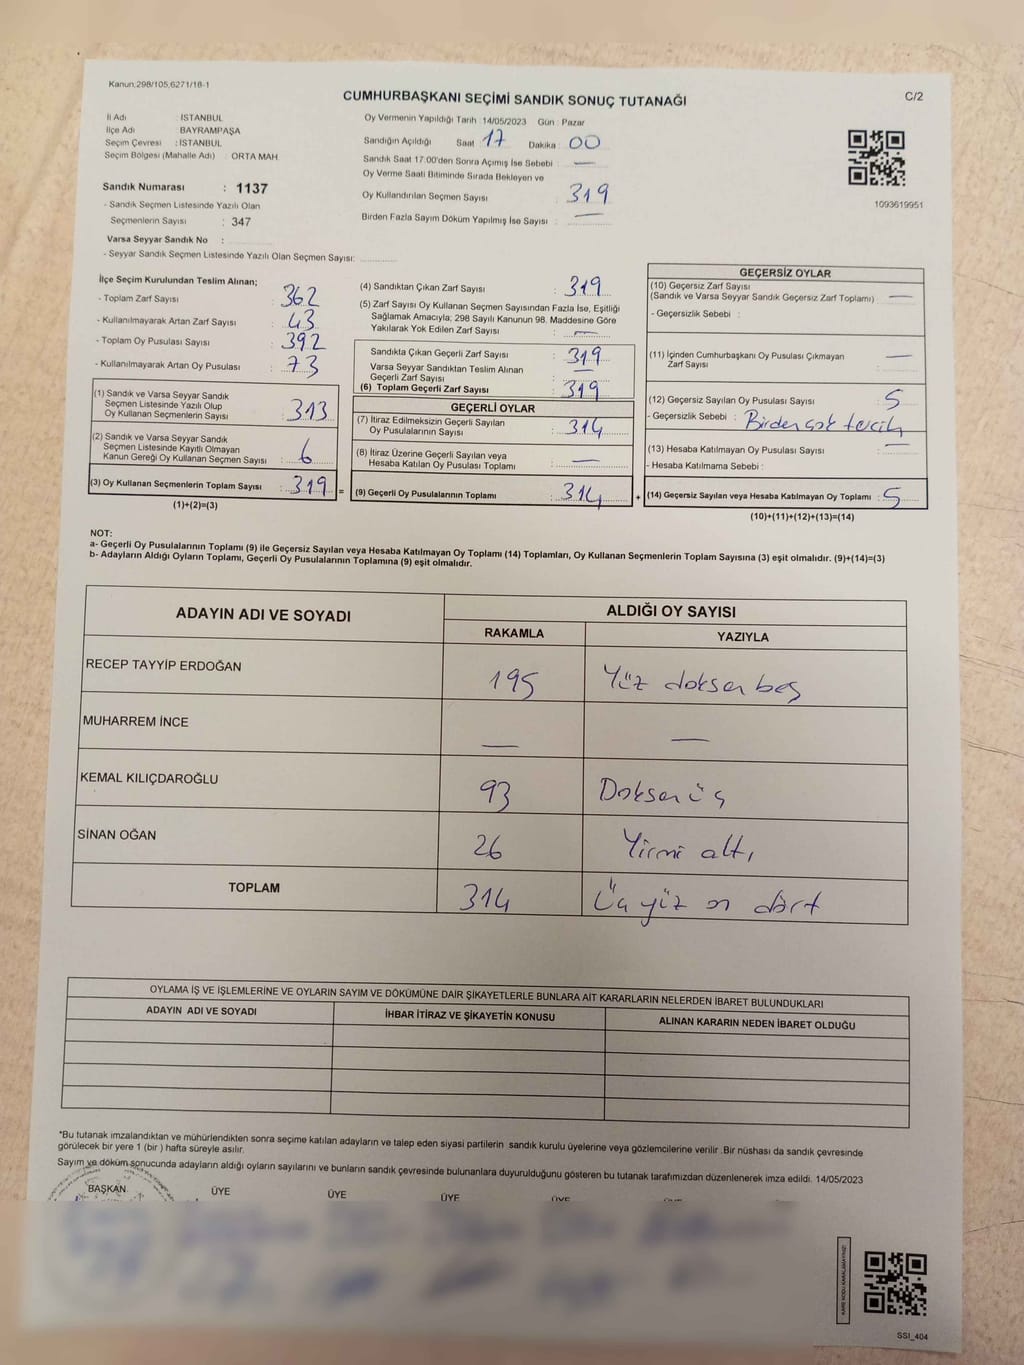 Kanun:298/105,6271/18-1
CUMHURBAŞKANI SEÇİMİ SANDIK SONUÇ TUTANAĞI
C/2
İl Adı : İSTANBUL
İlçe Adı : BAYRAMPAŞA
Seçim Çevresi : İSTANBUL
Seçim Bölgesi (Mahalle Adı) : ORTA MAH
Sandık Numarası : 1137
- Sandık Seçmen Listesinde Yazılı Olan
Seçmenlerin Sayısı : 347
Varsa Seyyar Sandık No :
- Seyyar Sandık Seçmen Listesinde Yazılı Olan Seçmen Sayısı:
Oy Vermenin Yapıldığı Tarih : 14/05/2023 Gün : Pazar
Sandığın Açıldığı Saat : 17 Dakika : 00
Sandık Saat 17:00'den Sonra Açımış İse Sebebi : —
Oy Verme Saati Bitiminde Sırada Bekleyen ve
Oy Kullandırılan Seçmen Sayısı : 319
Birden Fazla Sayım Döküm Yapılmış İse Sayısı : —
1093619951
İlçe Seçim Kurulundan Teslim Alınan;
- Toplam Zarf Sayısı : 362
- Kullanılmayarak Artan Zarf Sayısı : 43
- Toplam Oy Pusulası Sayısı : 392
- Kullanılmayarak Artan Oy Pusulası : 73
(1) Sandık ve Varsa Seyyar Sandık
Seçmen Listesinde Yazılı Olup
Oy Kullanan Seçmenlerin Sayısı : 313
(2) Sandık ve Varsa Seyyar Sandık
Seçmen Listesinde Kayıtlı Olmayan
Kanun Gereği Oy Kullanan Seçmen Sayısı : 6
(3) Oy Kullanan Seçmenlerin Toplam Sayısı : 319 =
(1)+(2)=(3)
(4) Sandıktan Çıkan Zarf Sayısı : 319
(5) Zarf Sayısı Oy Kullanan Seçmen Sayısından Fazla İse, Eşitliği
Sağlamak Amacıyla; 298 Sayılı Kanunun 98. Maddesine Göre
Yakılarak Yok Edilen Zarf Sayısı : —
Sandıkta Çıkan Geçerli Zarf Sayısı : 319
Varsa Seyyar Sandıktan Teslim Alınan
Geçerli Zarf Sayısı : —
(6) Toplam Geçerli Zarf Sayısı : 319
GEÇERLİ OYLAR
(7) İtiraz Edilmeksizin Geçerli Sayılan
Oy Pusulalarının Sayısı : 314
(8) İtiraz Üzerine Geçerli Sayılan veya
Hesaba Katılan Oy Pusulası Toplamı : —
(9) Geçerli Oy Pusulalarının Toplamı : 314 +
GEÇERSİZ OYLAR
(10) Geçersiz Zarf Sayısı
(Sandık ve Varsa Seyyar Sandık Geçersiz Zarf Toplamı) : —
- Geçersizlik Sebebi :
(11) İçinden Cumhurbaşkanı Oy Pusulası Çıkmayan
Zarf Sayısı : —
(12) Geçersiz Sayılan Oy Pusulası Sayısı : 5
- Geçersizlik Sebebi : Birden çok tercih
(13) Hesaba Katılmayan Oy Pusulası Sayısı : —
- Hesaba Katılmama Sebebi :
(14) Geçersiz Sayılan veya Hesaba Katılmayan Oy Toplamı : 5
(10)+(11)+(12)+(13)=(14)
NOT:
a- Geçerli Oy Pusulalarının Toplamı (9) ile Geçersiz Sayılan veya Hesaba Katılmayan Oy Toplamı (14) Toplamları, Oy Kullanan Seçmenlerin Toplam Sayısına (3) eşit olmalıdır. (9)+(14)=(3)
b- Adayların Aldığı Oyların Toplamı, Geçerli Oy Pusulalarının Toplamına (9) eşit olmalıdır.
ADAYIN ADI VE SOYADI
ALDIĞI OY SAYISI
RAKAMLA YAZIYLA
RECEP TAYYİP ERDOĞAN 195 Yüz doksan beş
MUHARREM İNCE — —
KEMAL KILIÇDAROĞLU 93 Doksan üç
SİNAN OĞAN 26 Yirmi altı
TOPLAM 314 Üç yüz on dört
OYLAMA İŞ VE İŞLEMLERİNE VE OYLARIN SAYIM VE DÖKÜMÜNE DAİR ŞİKAYETLERLE BUNLARA AİT KARARLARIN NELERDEN İBARET BULUNDUKLARI
ADAYIN ADI VE SOYADI İHBAR İTİRAZ VE ŞİKAYETİN KONUSU ALINAN KARARIN NEDEN İBARET OLDUĞU
*Bu tutanak imzalandıktan ve mühürlendikten sonra seçime katılan adayların ve talep eden siyasi partilerin sandık kurulu üyelerine veya gözlemcilerine verilir .Bir nüshası da sandık çevresinde
görülecek bir yere 1 (bir ) hafta süreyle asılır.
Sayım ve döküm sonucunda adayların aldığı oyların sayılarını ve bunların sandık çevresinde bulunanlara duyurulduğunu gösteren bu tutanak tarafımızdan düzenlenerek imza edildi. 14/05/2023
BAŞKAN ÜYE ÜYE ÜYE ÜYE
KARE KODU KARALAMAYINIZ!
SSI_404